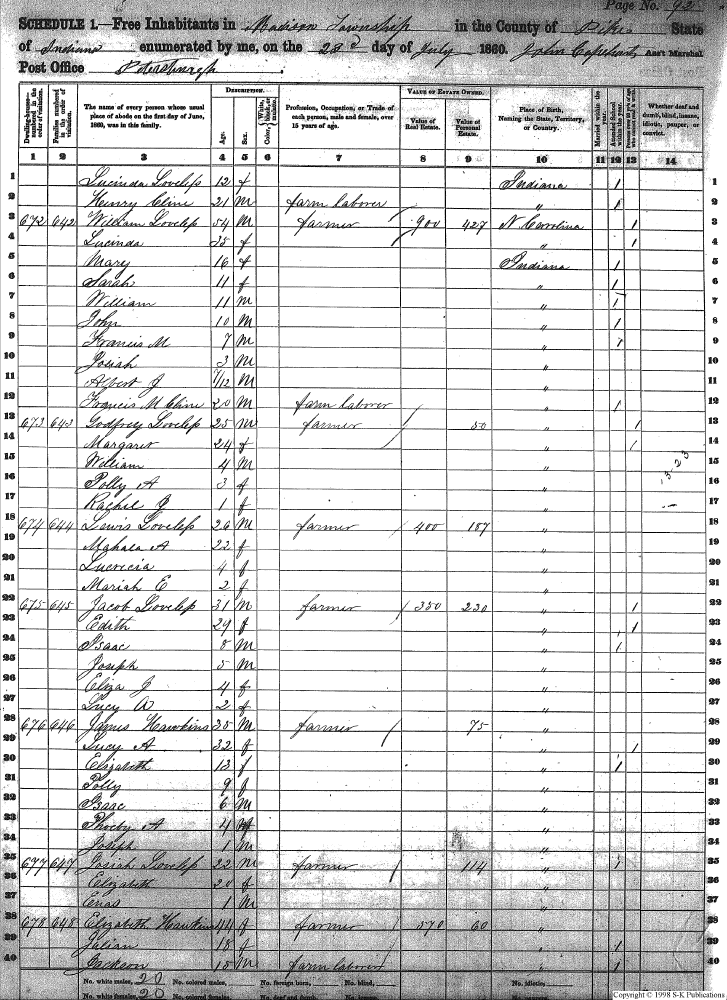 Page No. 92
SCHEDULE 1.—Free Inhabitants in Madison Township in the County of Pike State
of Indiana enumerated by me, on the 23d day of July 1860. John Capehart Ass't Marshal
Post Office Petersburgh
DESCRIPTION. VALUE OF ESTATE OWNED.
Dwelling-houses—numbered in the order of visitation. Families numbered in the order of visitation. The name of every person whose usual place of abode on the first day of June, 1860, was in this family. Age. Sex. Color, White, black, or mulatto. Profession, Occupation, or Trade of each person, male and female, over 15 years of age. Value of Real Estate. Value of Personal Estate. Place of Birth, Naming the State, Territory, or Country. Married within the year. Attended School within the year. Persons over 20 years of age who cannot read & write. Whether deaf and dumb, blind, insane, idiotic, pauper, or convict.
1 2 3 4 5 6 7 8 9 10 11 12 13 14
1 Lucinda Lovelep 12 f Indiana 1 1
2 Henry Cline 21 m farm laborer " 1 2
3 672 642 William Lovelep 54 m farmer 900 427 N Carolina 1 3
4 Lucinda 35 f " 1 4
5 Mary 16 f Indiana 1 5
6 Sarah 11 f " 1 6
7 William 11 m " 1 7
8 John 10 m " 1 8
9 Francis M 7 m " 1 9
10 Josiah 3 m " 10
11 Albert J 7/12 m " 11
12 Francis M Cline 20 m farm laborer " 1 12
13 673 643 Godfrey Lovelep 25 m farmer 50 " 1 13
14 Margaret 24 f " 1 14
15 William 4 m " 15
16 Polly A 3 f " 16
17 Rachel J 1 f " 17
18 674 644 Lewis Lovelep 26 m farmer 400 187 " 18
19 Mahala A 22 f " 19
20 Lucrecia 4 f " 20
21 Mariah E 2 f " 21
22 675 645 Jacob Lovelep 31 m farmer 350 230 " 1 22
23 Edith 29 f " 1 23
24 Isaac 8 m " 1 24
25 Joseph 5 m " 25
26 Eliza J 4 f " 26
27 Lucy A 2 f " 27
28 676 646 James Hawkins 35 m farmer 75 " 28
29 Lucy A 32 f " 1 29
30 Elizabeth 13 f " 1 30
31 Polly 9 f " 31
32 Isaac 6 m " 32
33 Phoeby A 4 f " 33
34 Joseph 1 m " 34
35 677 647 Josiah Lovelep 22 m farmer 114 " 1 35
36 Elizabeth 20 f " 36
37 Enas 1 m " 37
38 678 648 Elizabeth Hawkins 44 f farmer 570 60 " 38
39 Julian 18 f " 1 39
40 Jackson 15 m farm laborer " 1 40
No. white males, 20 No. colored males, No. foreign born, No. blind, No. idiotic,
No. white females, 20 No. colored females, No. deaf and dumb, No. insane,
Copyright © 1998 S-K Publications